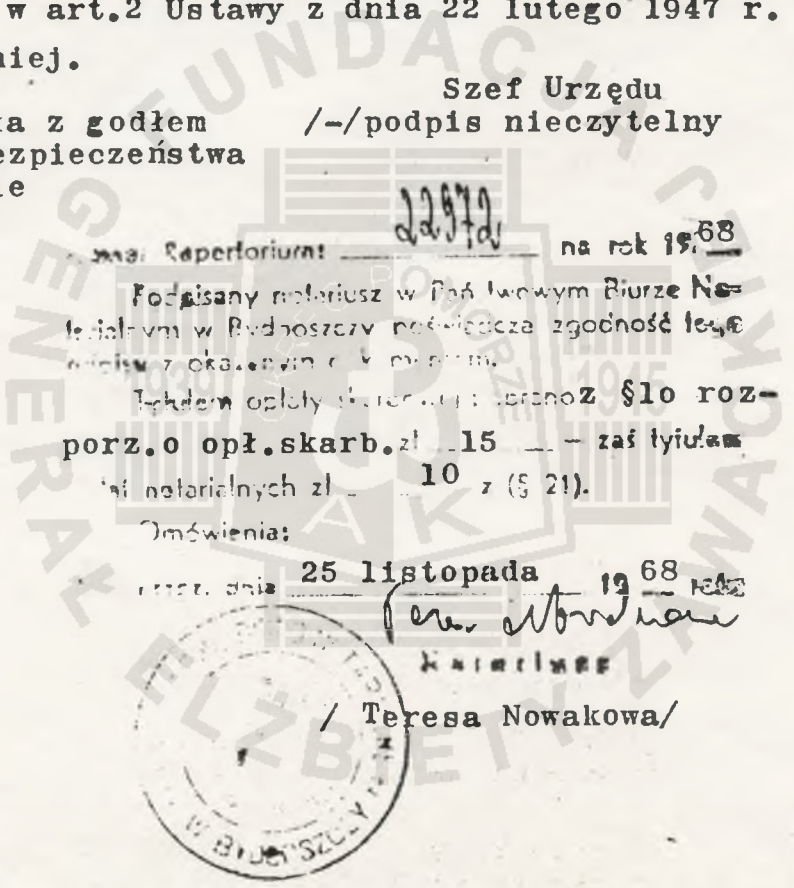 w art.2 Ustawy z dnia 22 lutego 1947 r.
niej.
Szef Urzędu
ka z godłem /-/podpis nieczytelny
ezpieczeństwa
ie
Repertorium: 22972 na rok 1968
Podpisany notariusz w Państwowym Biurze No=
tarialnym w Bydgoszczy poświadcza zgodność tego
odpisu z okazanym dokumentem.
Tytułem opłaty skarbowej pobrano z §10 roz-
porz.o opł.skarb.zł 15 - zaś tytułem
notarialnych zł 10 z (§ 21).
Omówienia:
dnia 25 listopada 19 68 roku
Notariusz
/ Teresa Nowakowa/
W BYDGOSZCZY
FUNDACJA GENERAŁ ELŻBIETY ZAWACKIEJ
POMORZE
1939 1945
AK